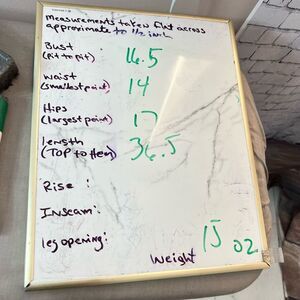 measurements taken flat across
approximate to 1/2 inch
Bust : 16.5
(pit to pit)
waist : 14
(smallest point)
Hips : 17
(largest point)
length : 36.5
(TOP to Hem)
Rise :
Inseam:
leg opening:
Weight 15 oz